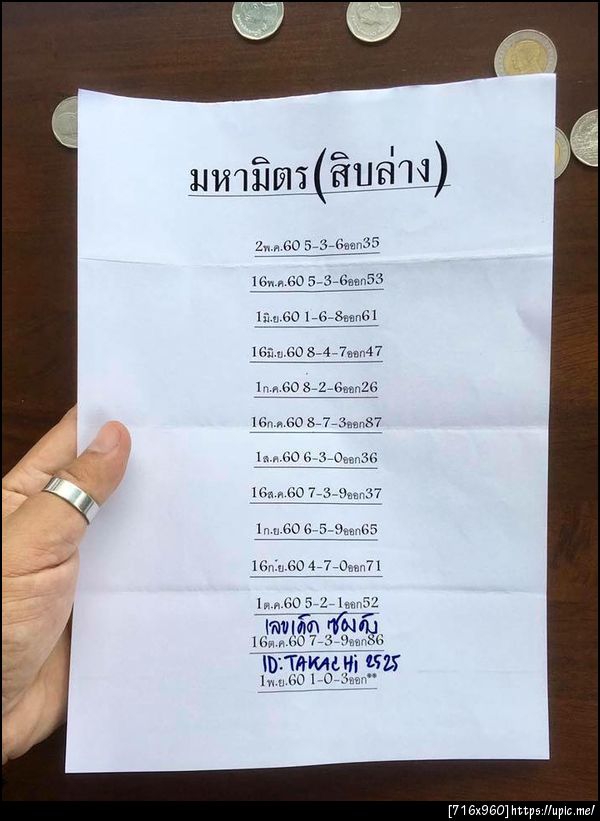 มหามิตร(สิบล่าง)
2พ.ค.60 5-3-6ออก35
16พ.ค.60 5-3-6ออก53
1มิ.ย.60 1-6-8ออก61
16มิ.ย.60 8-4-7ออก47
1ก.ค.60 8-2-6ออก26
16ก.ค.60 8-7-3ออก87
1ส.ค.60 6-3-0ออก36
16ส.ค.60 7-3-9ออก37
1ก.ย.60 6-5-9ออก65
16ก.ย.60 4-7-0ออก71
1ต.ค.60 5-2-1ออก52
เลขเด็ด ซองดัง
16ต.ค.60 7-3-9ออก86
ID: TAKACHi 2525
1พ.ย.60 1-0-3ออก**
[716x960]https://upic.me/